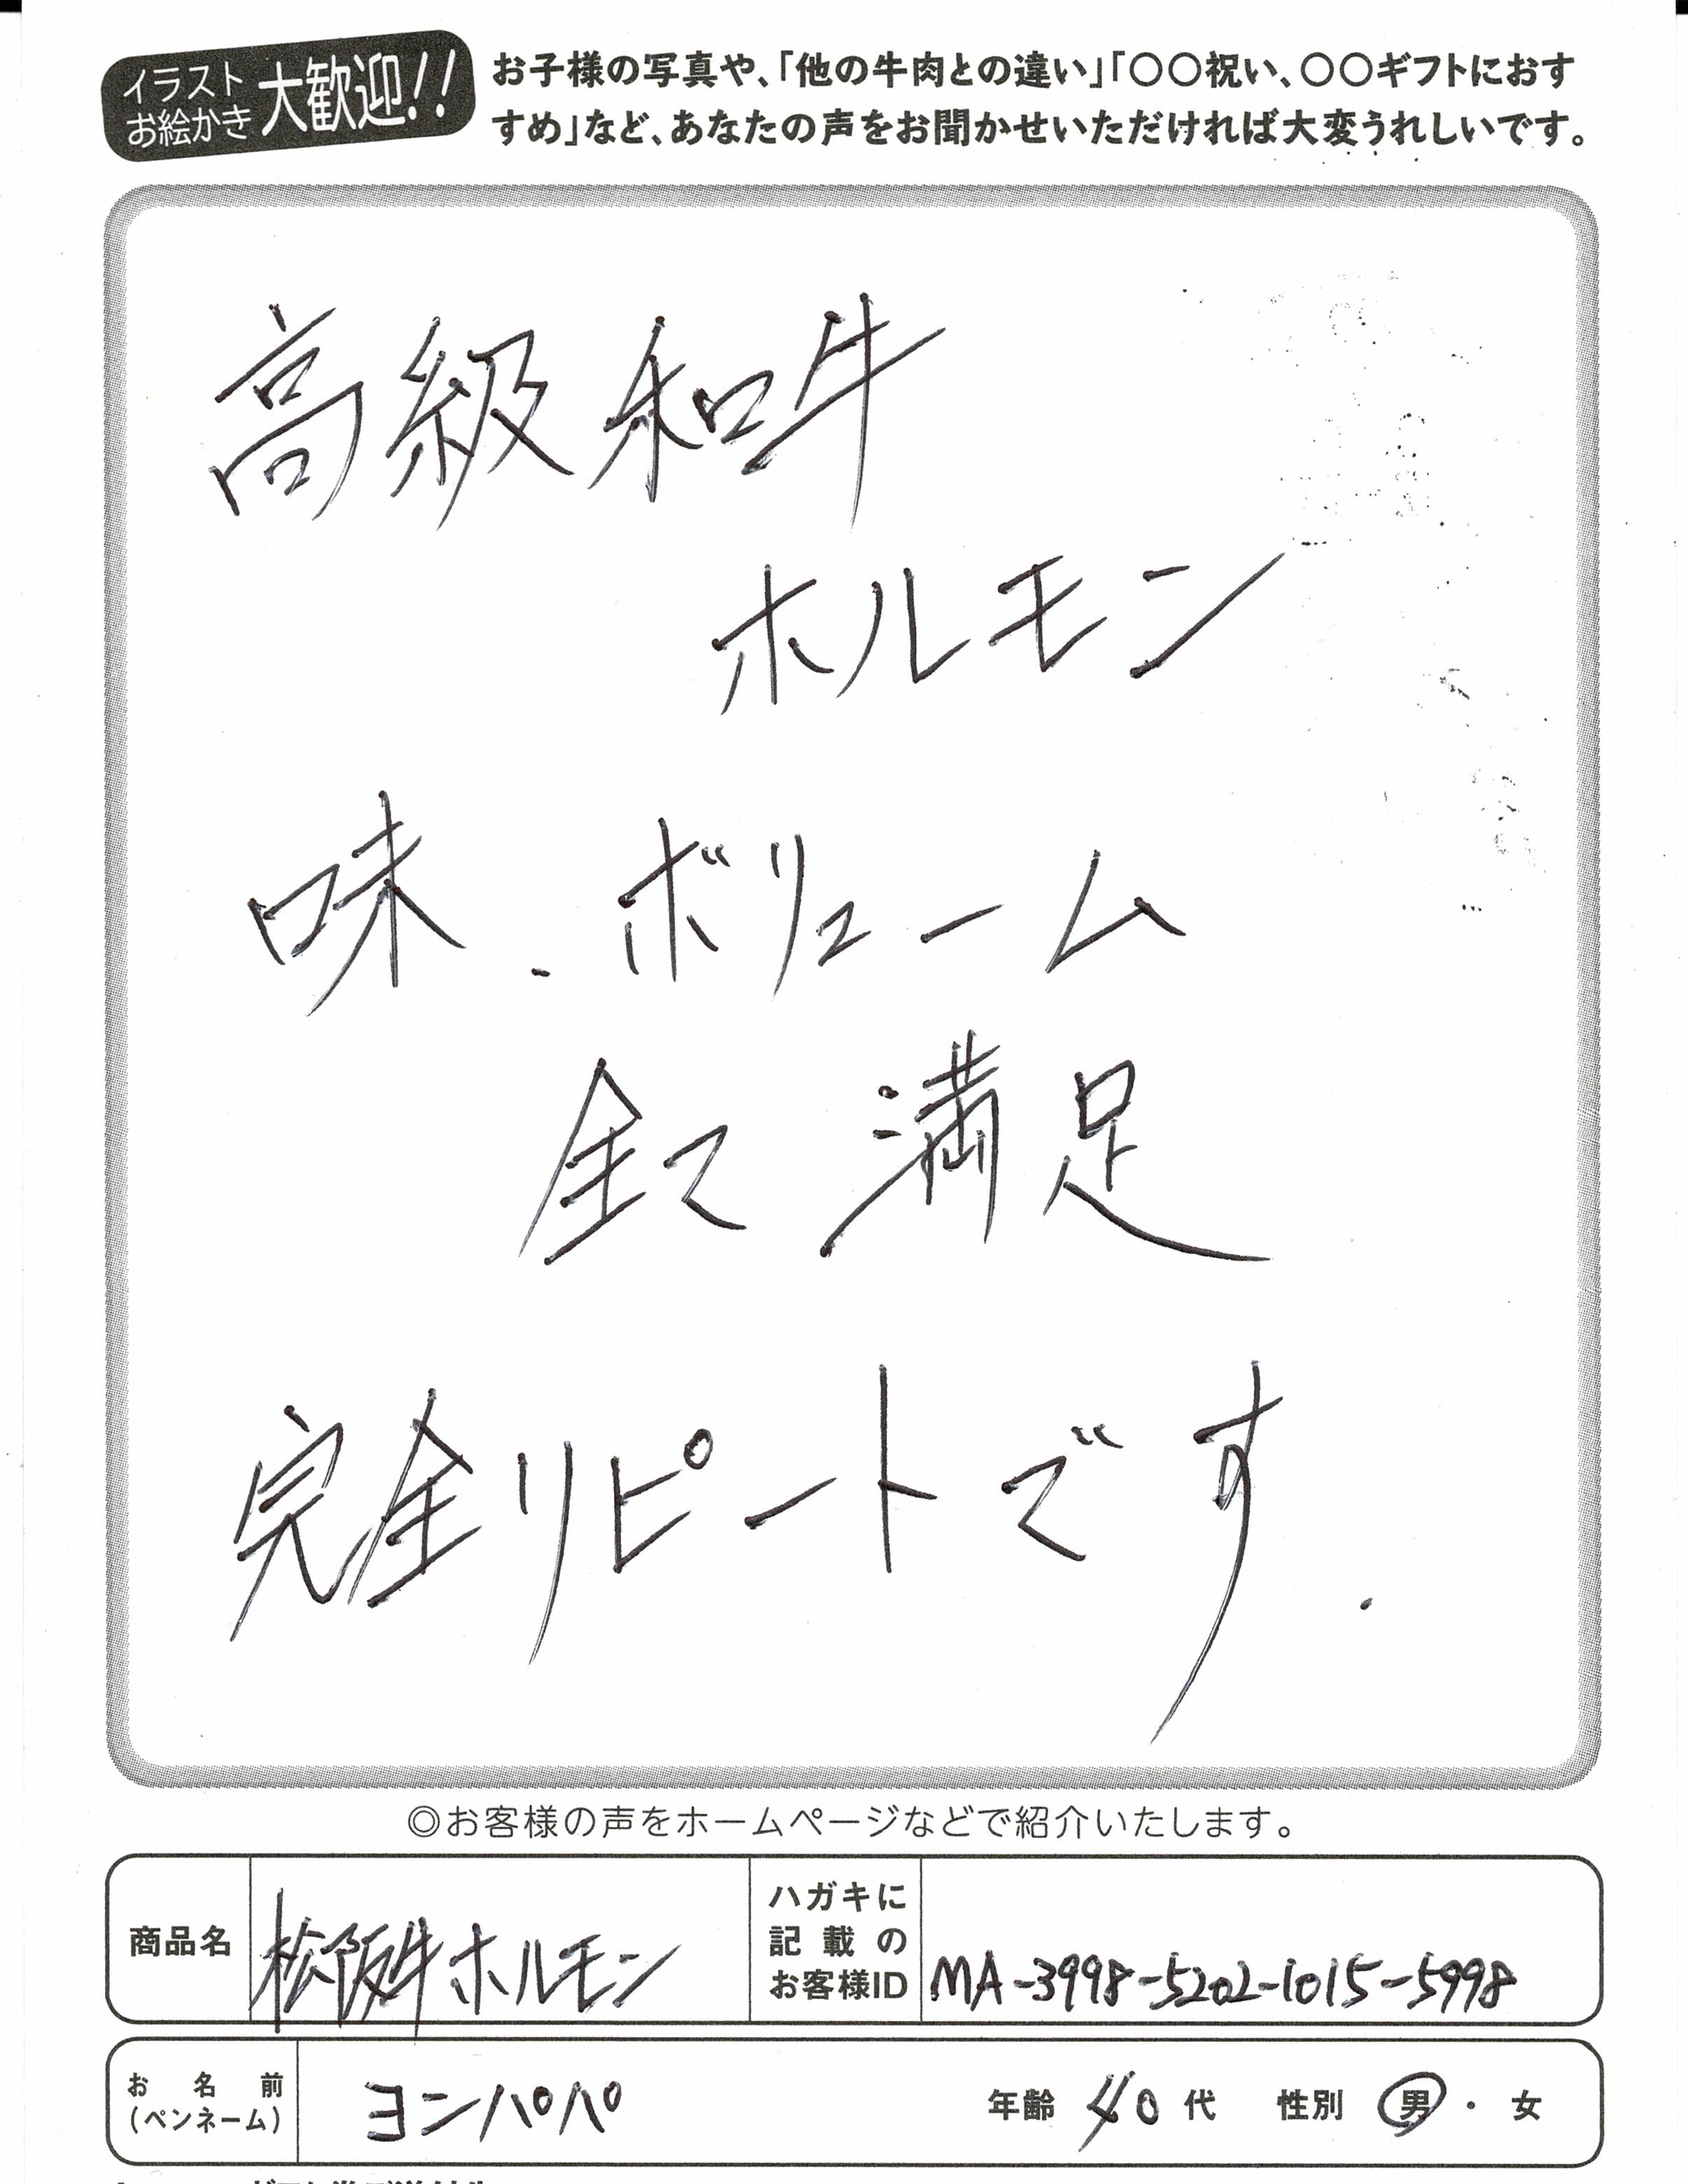 イラスト
お絵かき
大歓迎!!
お子様の写真や、「他の牛肉との違い」「〇〇祝い、〇〇ギフトにおす
すめ」など、あなたの声をお聞かせいただければ大変うれしいです。
高級和牛
ホルモン
味、ボリューム
全て満足
完全リピートです.
◎お客様の声をホームページなどで紹介いたします。
商品名
松阪牛ホルモン
ハガキに
記載の
お客様ID
MA-3998-5202-1015-5998
お名前
(ペンネーム)
ヨンパパ
年齢 40 代 性別 男・女